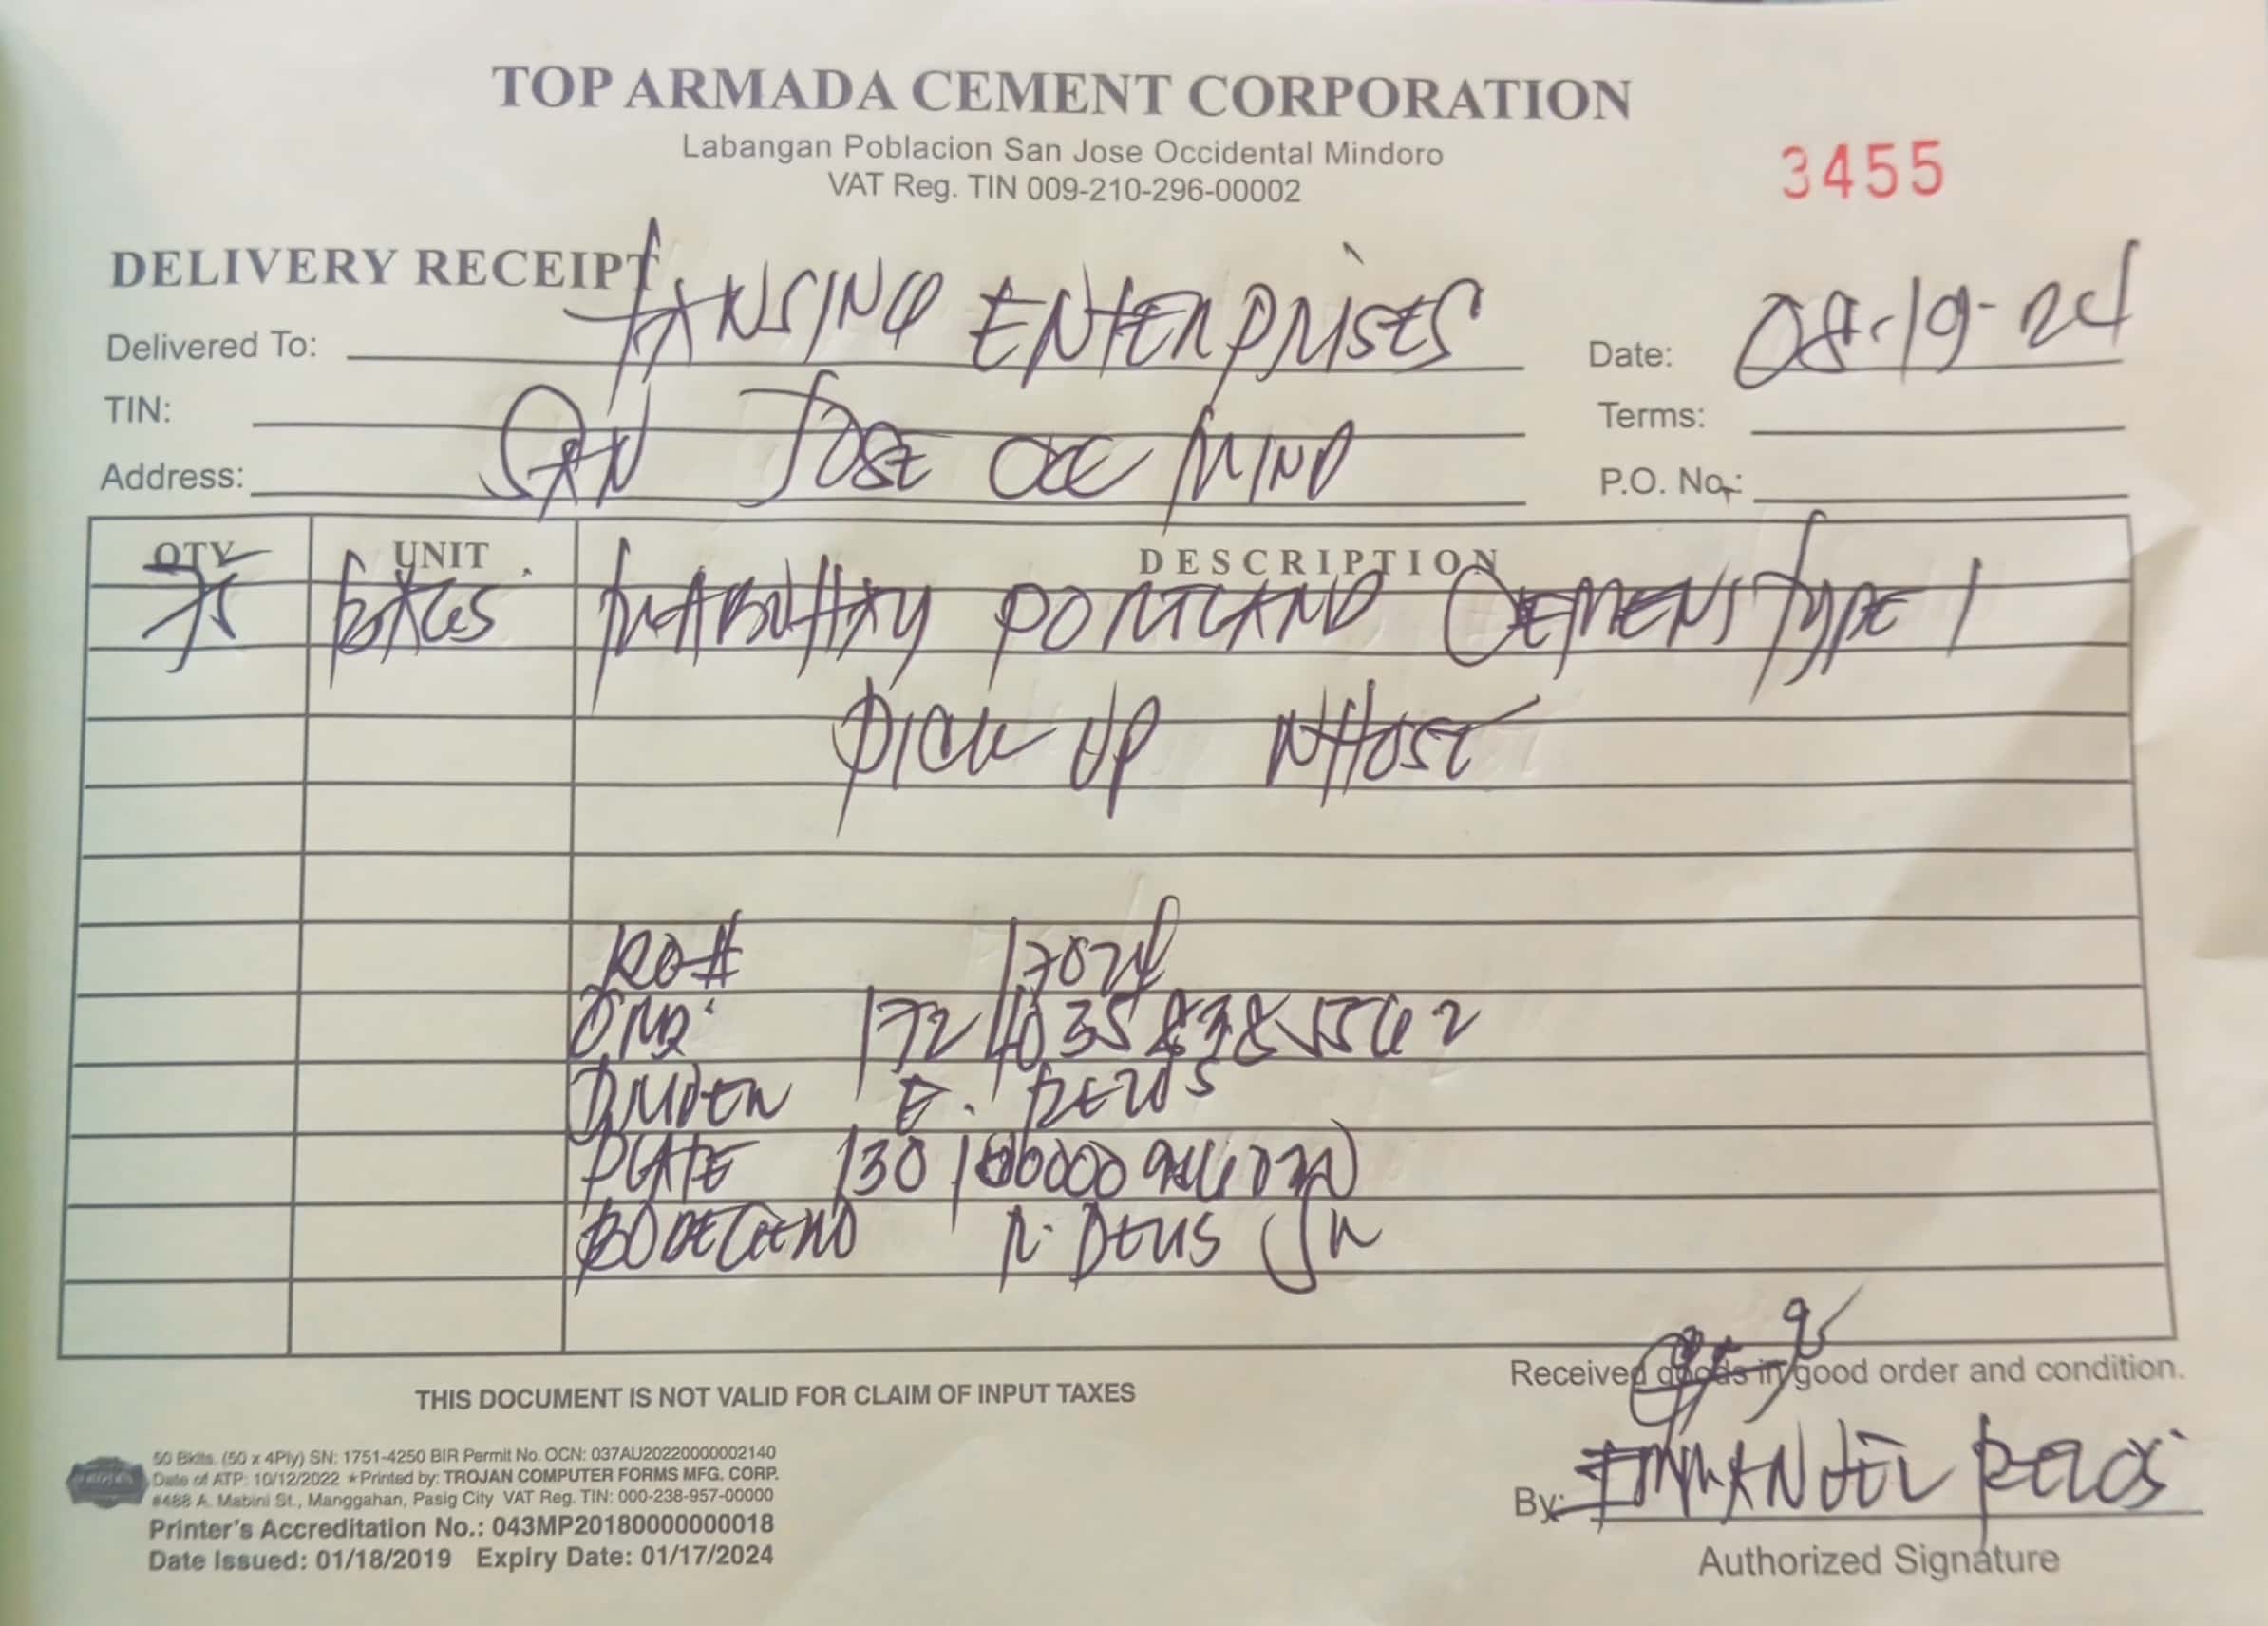 TOP ARMADA CEMENT CORPORATION
Labangan Poblacion San Jose Occidental Mindoro
VAT Reg. TIN 009-210-296-00002
3455
DELIVERY RECEIPT
Delivered To: TANSING ENTERPRISES
Date: 08-19-24
TIN:
Terms:
Address: SAN JOSE OCC MIND
P.O. No.:
QTY UNIT DESCRIPTION
75 PORTLAND CEMENT TYPE 1
PICK UP WHOSE
RO# 17024
1724035
E.
PLATE 130
BODEGERO R. DEUS JR
THIS DOCUMENT IS NOT VALID FOR CLAIM OF INPUT TAXES
Received goods in good order and condition.
By: EMMANUEL
Authorized Signature
50 Bklts. (50 x 4Ply) SN: 1751-4250 BIR Permit No. OCN: 037AU20220000002140
Date of ATP: 10/12/2022 ★Printed by: TROJAN COMPUTER FORMS MFG. CORP.
#488 A. Mabini St., Manggahan, Pasig City VAT Reg. TIN: 000-238-957-00000
Printer's Accreditation No.: 043MP20180000000018
Date Issued: 01/18/2019 Expiry Date: 01/17/2024